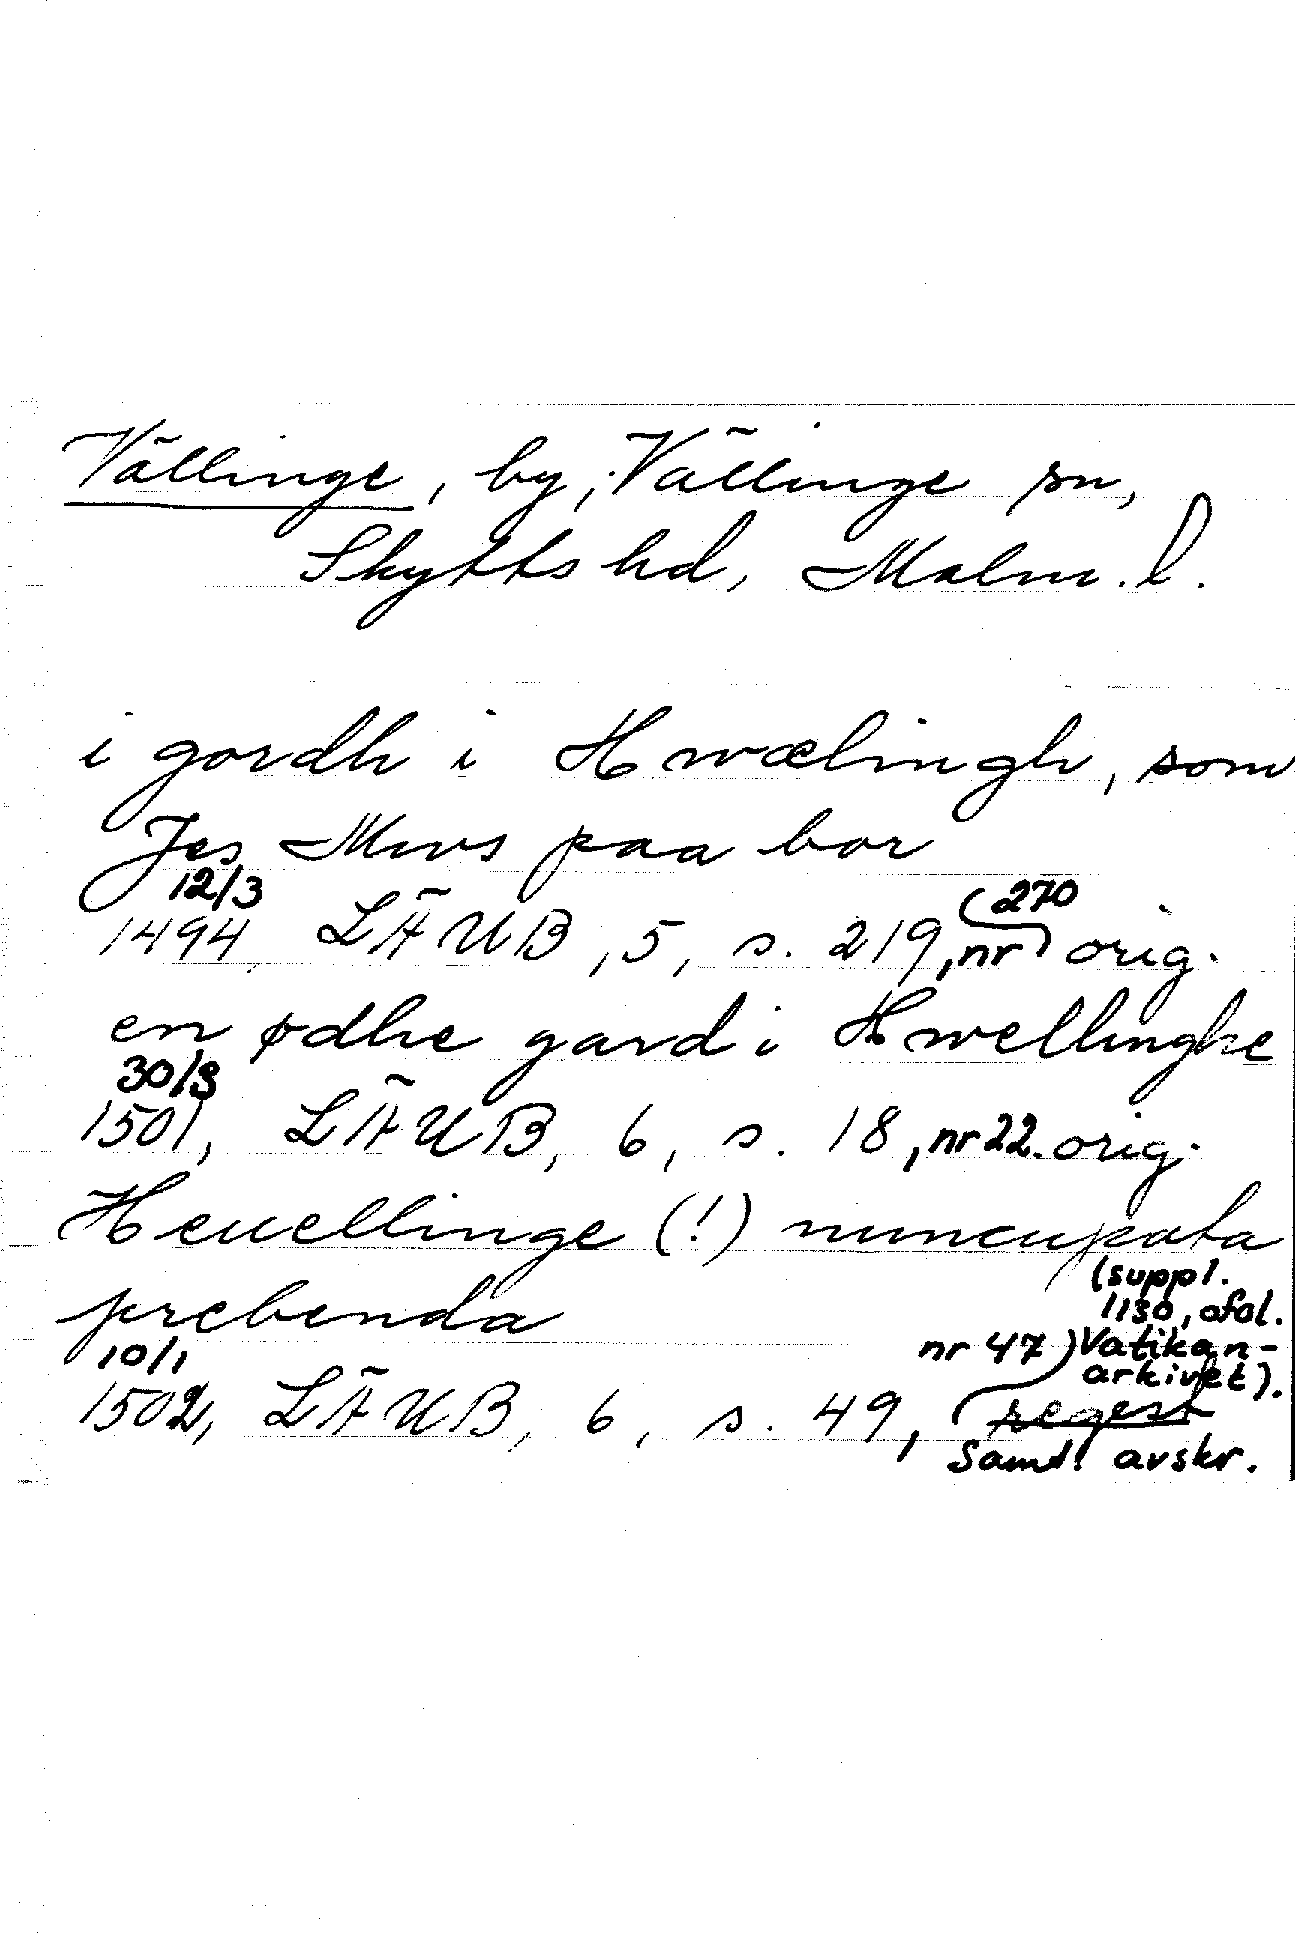 Vällinge, by, Vällinge sn,
Skytts hd, Malm. l.
i gordh i Hwælingh, som
Jes Mws paa bor
12/3
1494 LÄUB, 5, s. 219, nr 270 orig.
en ødhe gard i Hwellinghe
30/8
1501, LÄUB, 6, s. 18, nr 22. orig.
Heuellinge (!) nuncupata
prebenda
10/1
1502, LÄUB, 6, s. 49, nr 47 regest
Samt. avskr.
(suppl.
1130, afol.
Vatikan-
arkivet).